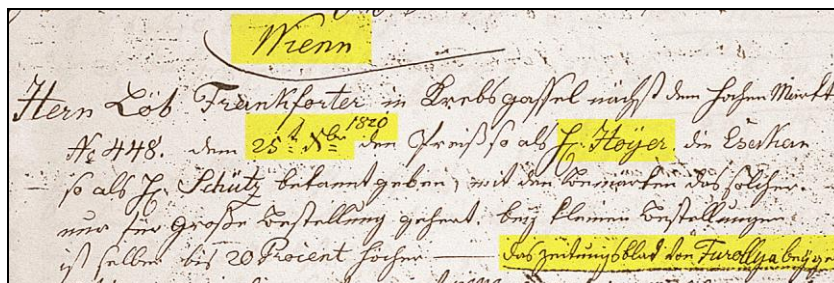 Wienn
Hern Löb Frankforter in Krebsgassel nächst dem hochen Markt
No 448. dem 25t. Xbr 1820 den Preiß so als H. Hoÿer, die
so als H. Schütz bekannt geben, mit den bemärken das solcher
nur für Große bestellung gehert. beÿ kleinen bestellungen
ist selber bis 20 Procent höcher — das zeitungsblad von